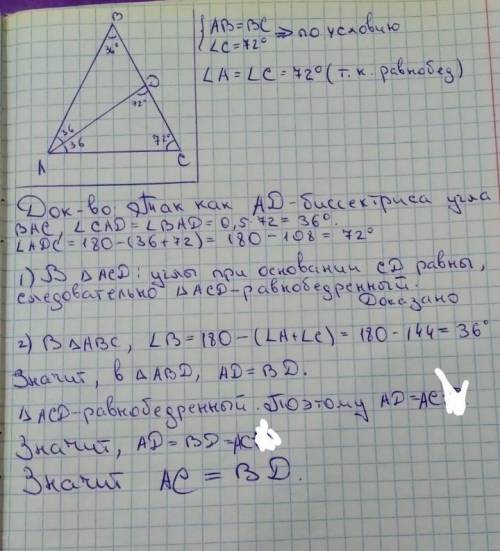 B
36°
D
72°
36
36
72°
A
C
{ AB=BC
∠C=72° ⇒ по условию
∠A=∠C=72° (т.к. равнобед)
Док-во: Так как AD-биссектриса угла
BAC, ∠CAD=∠BAD=0,5 72=36°.
∠ADC=180-(36+72)=180-108=72°
1) В △ACD: углы при основании CD равны,
следовательно △ACD-равнобедренный.
Доказано
2) В △ABC, ∠B=180-(∠A+∠C)=180-144=36°
Значит, в △ABD, AD=BD.
△ACD-равнобедренный. Поэтому AD=AC
Значит, AD=BD=AC
Значит AC=BD.